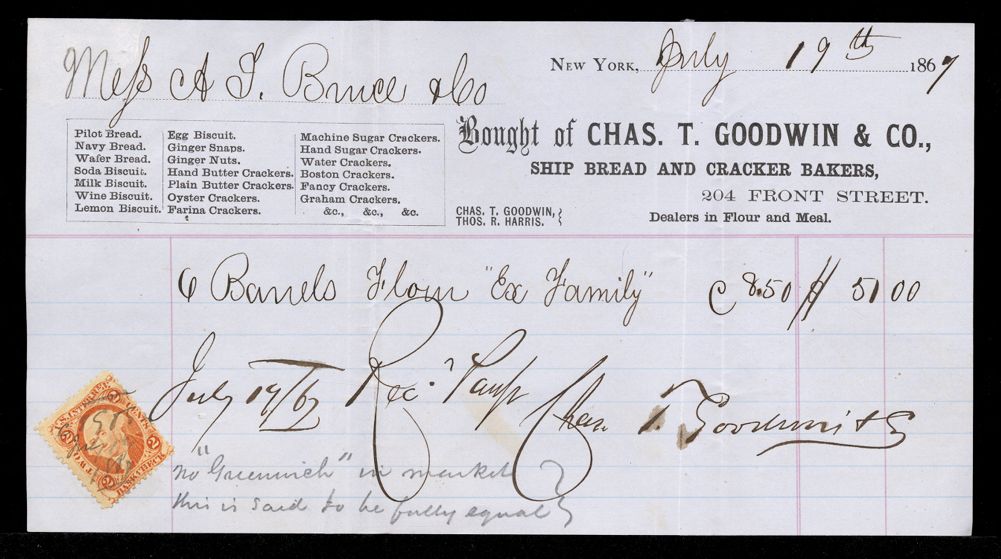 New York, July 19th 1867
Mess A. T. Bruce & Co
Pilot Bread.
Navy Bread.
Wafer Bread.
Soda Biscuit.
Milk Biscuit.
Wine Biscuit.
Lemon Biscuit.
Egg Biscuit.
Ginger Snaps.
Ginger Nuts.
Hand Butter Crackers.
Plain Butter Crackers.
Oyster Crackers.
Farina Crackers.
Machine Sugar Crackers.
Hand Sugar Crackers.
Water Crackers.
Boston Crackers.
Fancy Crackers.
Graham Crackers.
&c., &c., &c.
Bought of CHAS. T. GOODWIN & CO.,
SHIP BREAD AND CRACKER BAKERS,
204 FRONT STREET.
CHAS. T. GOODWIN,
THOS. R. HARRIS.
Dealers in Flour and Meal.
6 Barrels Flour "Ex Family" @ 8.50 $ 51 00
July 19/67 Rec. Paymt Chas. T. Goodwin & Co
U.S. INTER. REV.
TWO CENTS
BANK CHECK
2
no "Greenwich" in market
this is said to be fully equal